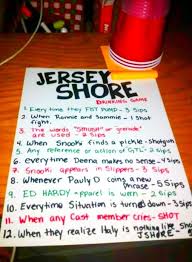 JERSEY
SHORE
DRINKING GAME
1. Every time they FIST PUMP - 3 sips
2. When Ronnie and Sammie - 1 shot
fight.
3. The words "Smush" or grenade
are used - 2 sips
4. When Snooki finds a pickle - shotgun
5. Any reference or action of GTL - 2 sips
6. everytime Deena makes no sense - 4 sips
7. Snooki appears in Slippers - 3 sips
8. Whenever Pauly D coins a new
phrase - 5 sips
9. ED HARDY apparel is worn - 2 sips
10. Everytime Situation is turned down - 3 sips
11. When any Cast member cries - SHOT
12. When they realize Italy is nothing like
JSHORE